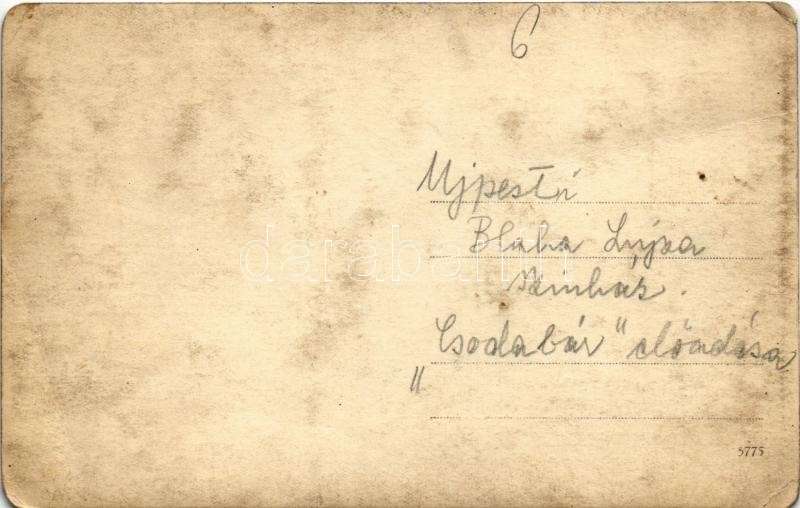 6
Ujpesti
Blaha Lujza
szinház.
„Csodabár" előadása
5775
darabanth